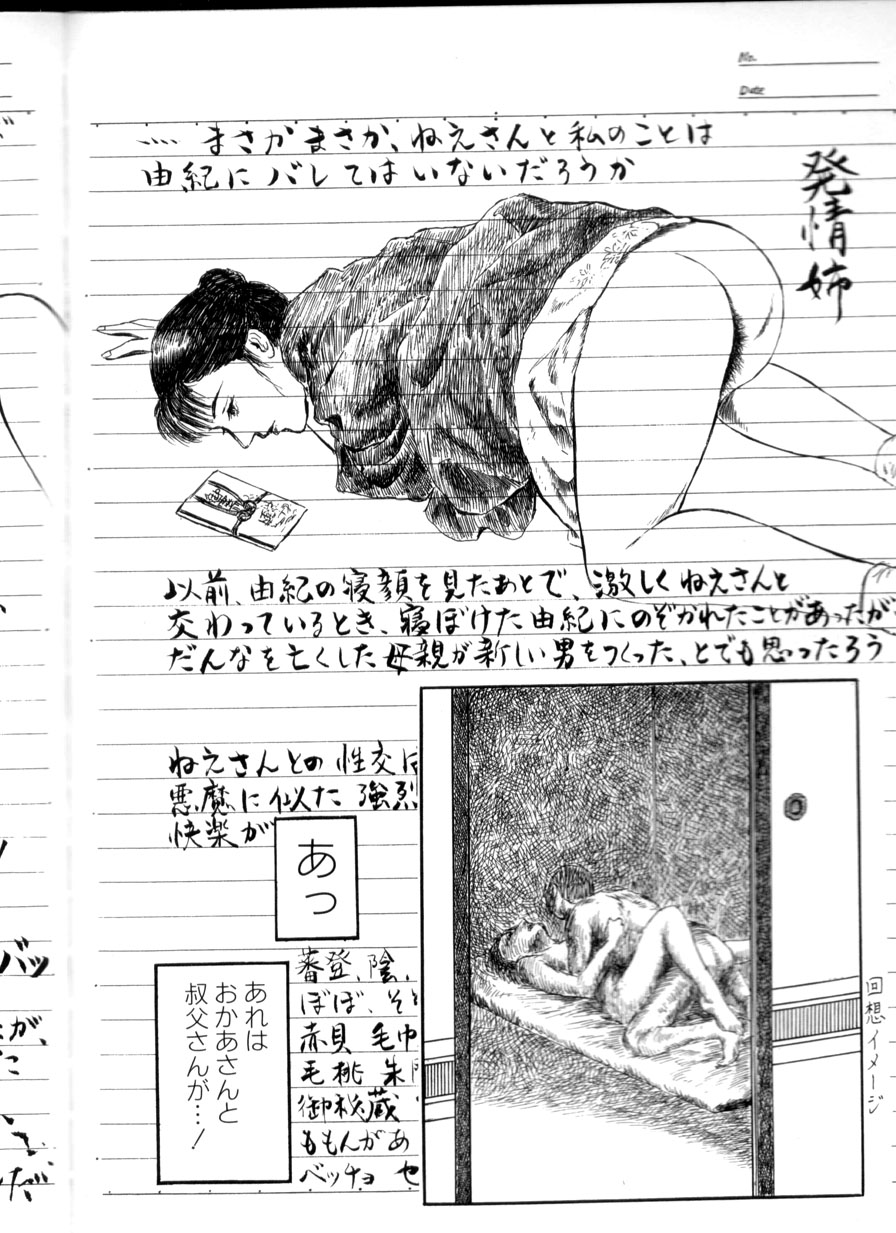 No.
Date
発情姉
…… まさかまさか、ねえさんと私のことは
由紀にバレてはいないだろうか
以前、由紀の寝顔を見たあとで、激しくねえさんと
交わっているとき、寝ぼけた由紀にのぞかれたことがあったが
だんなを亡くした母親が新しい男をつくった、とでも思ったろう
ねえさんとの性交は
悪魔に似た強烈
快楽が
あっ
あれは
おかあさんと
叔父さんが…！
蕃登、陰、
ぼぼ、そ
赤貝 毛巾
毛桃 朱
御秘蔵
ももんがあ
ベッチョ セ
回想イメージ
バッ
が、